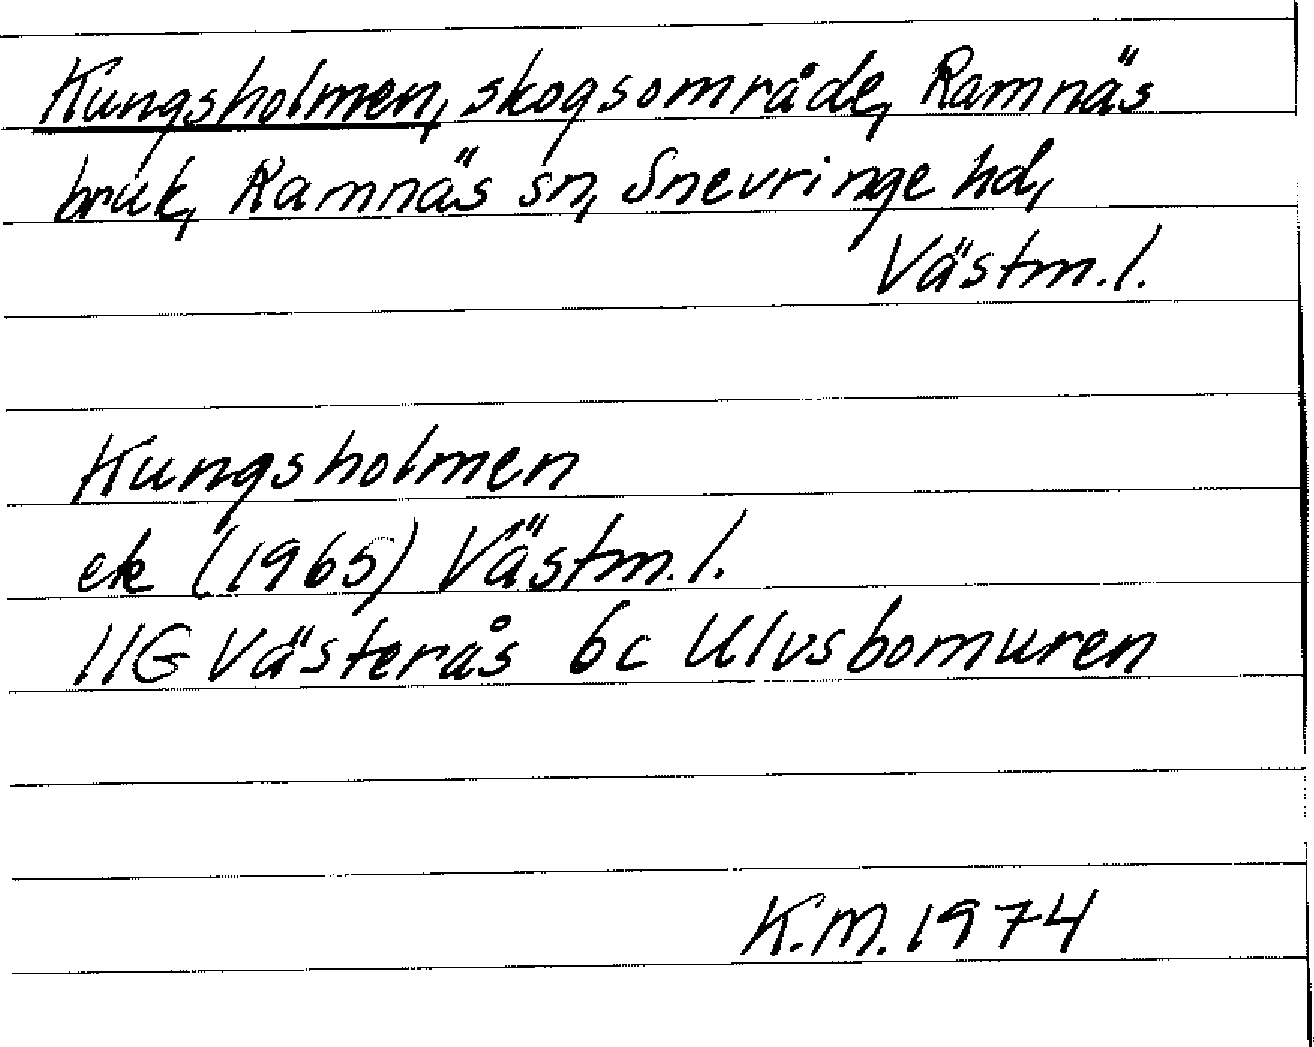 Kungsholmen, skogsområde, Ramnäs
bruk, Ramnäs sn, Snevringe hd,
Västm.l.
Kungsholmen
ek (1965) Västm.l.
11G Västerås 6c Ulvsbomuren
K.M. 1974